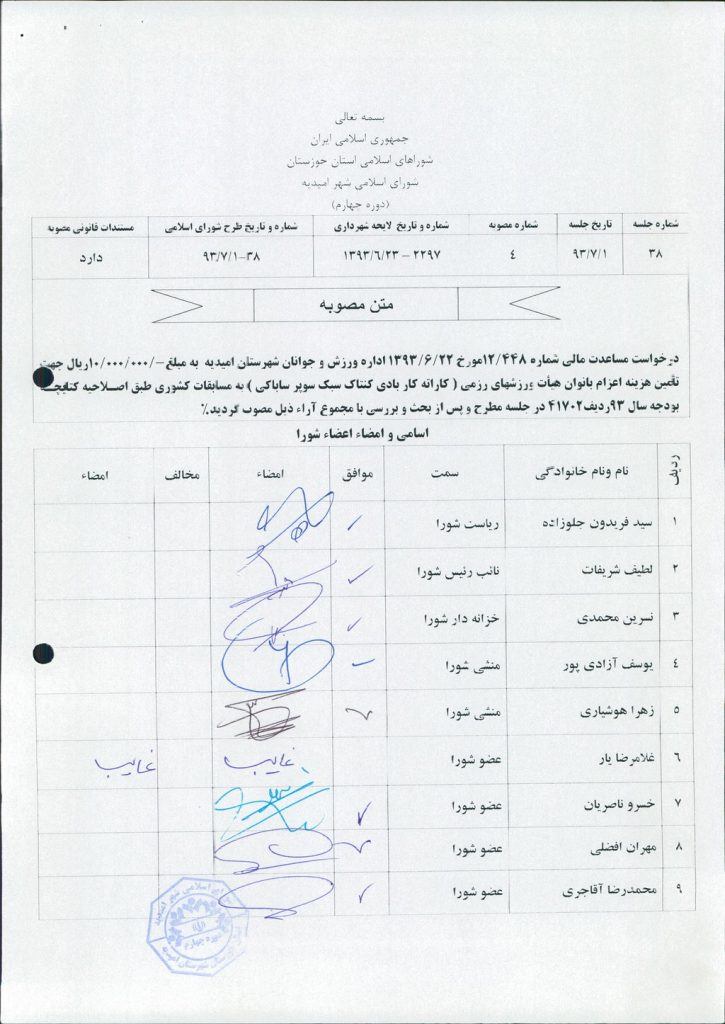 بسمه تعالی
جمهوری اسلامی ایران
شوراهای اسلامی استان خوزستان
شورای اسلامی شهر امیدیه
(دوره چهارم)
شماره جلسه تاریخ جلسه شماره مصوبه شماره و تاریخ لایحه شهرداری شماره و تاریخ طرح شورای اسلامی مستندات قانونی مصوبه
۳۸ ۹۳/۷/۱ ٤ ۲۲۹۷ – ۱۳۹۳/٦/۲۳ ۳۸-۹۳/۷/۱ دارد
متن مصوبه
درخواست مساعدت مالی شماره ۱۲/٤٤۸مورخ ۱۳۹۳/٦/۲۲ اداره ورزش و جوانان شهرستان امیدیه به مبلغ-/۱۰/۰۰۰/۰۰۰ریال جهت
تأمین هزینه اعزام بانوان هیأت ورزشهای رزمی ( کاراته کار بادی کنتاک سبک سوپر ساباکی ) به مسابقات کشوری طبق اصلاحیه کتابچه
بودجه سال ۹۳ردیف٤۱۷۰۲ در جلسه مطرح و پس از بحث و بررسی با مجموع آراء ذیل مصوب گردید.٪
اسامی و امضاء اعضاء شورا
ردیف نام ونام خانوادگی سمت موافق امضاء مخالف امضاء
۱ سید فریدون جلوزاده ریاست شورا
۲ لطیف شریفات نائب رئیس شورا
۳ نسرین محمدی خزانه دار شورا
٤ یوسف آزادی پور منشی شورا
٥ زهرا هوشیاری منشی شورا
٦ غلامرضا یار عضو شورا غایب غایب
۷ خسرو ناصریان عضو شورا
۸ مهران افضلی عضو شورا
۹ محمدرضا آقاجری عضو شورا
دوره چهارم